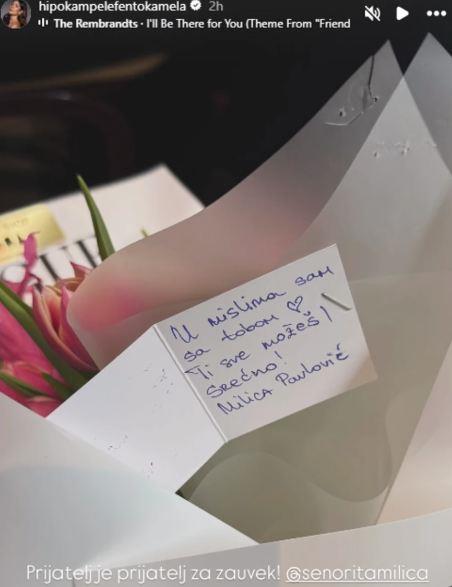 hipokampelefentokamela 2h
The Rembrandts · I'll Be There for You (Theme From "Friend
U mislima sam
sa tobom ♡
Ti sve možeš!
Srećno!
Milica Pavlović
Prijatelj je prijatelj za zauvek! @senoritamilica